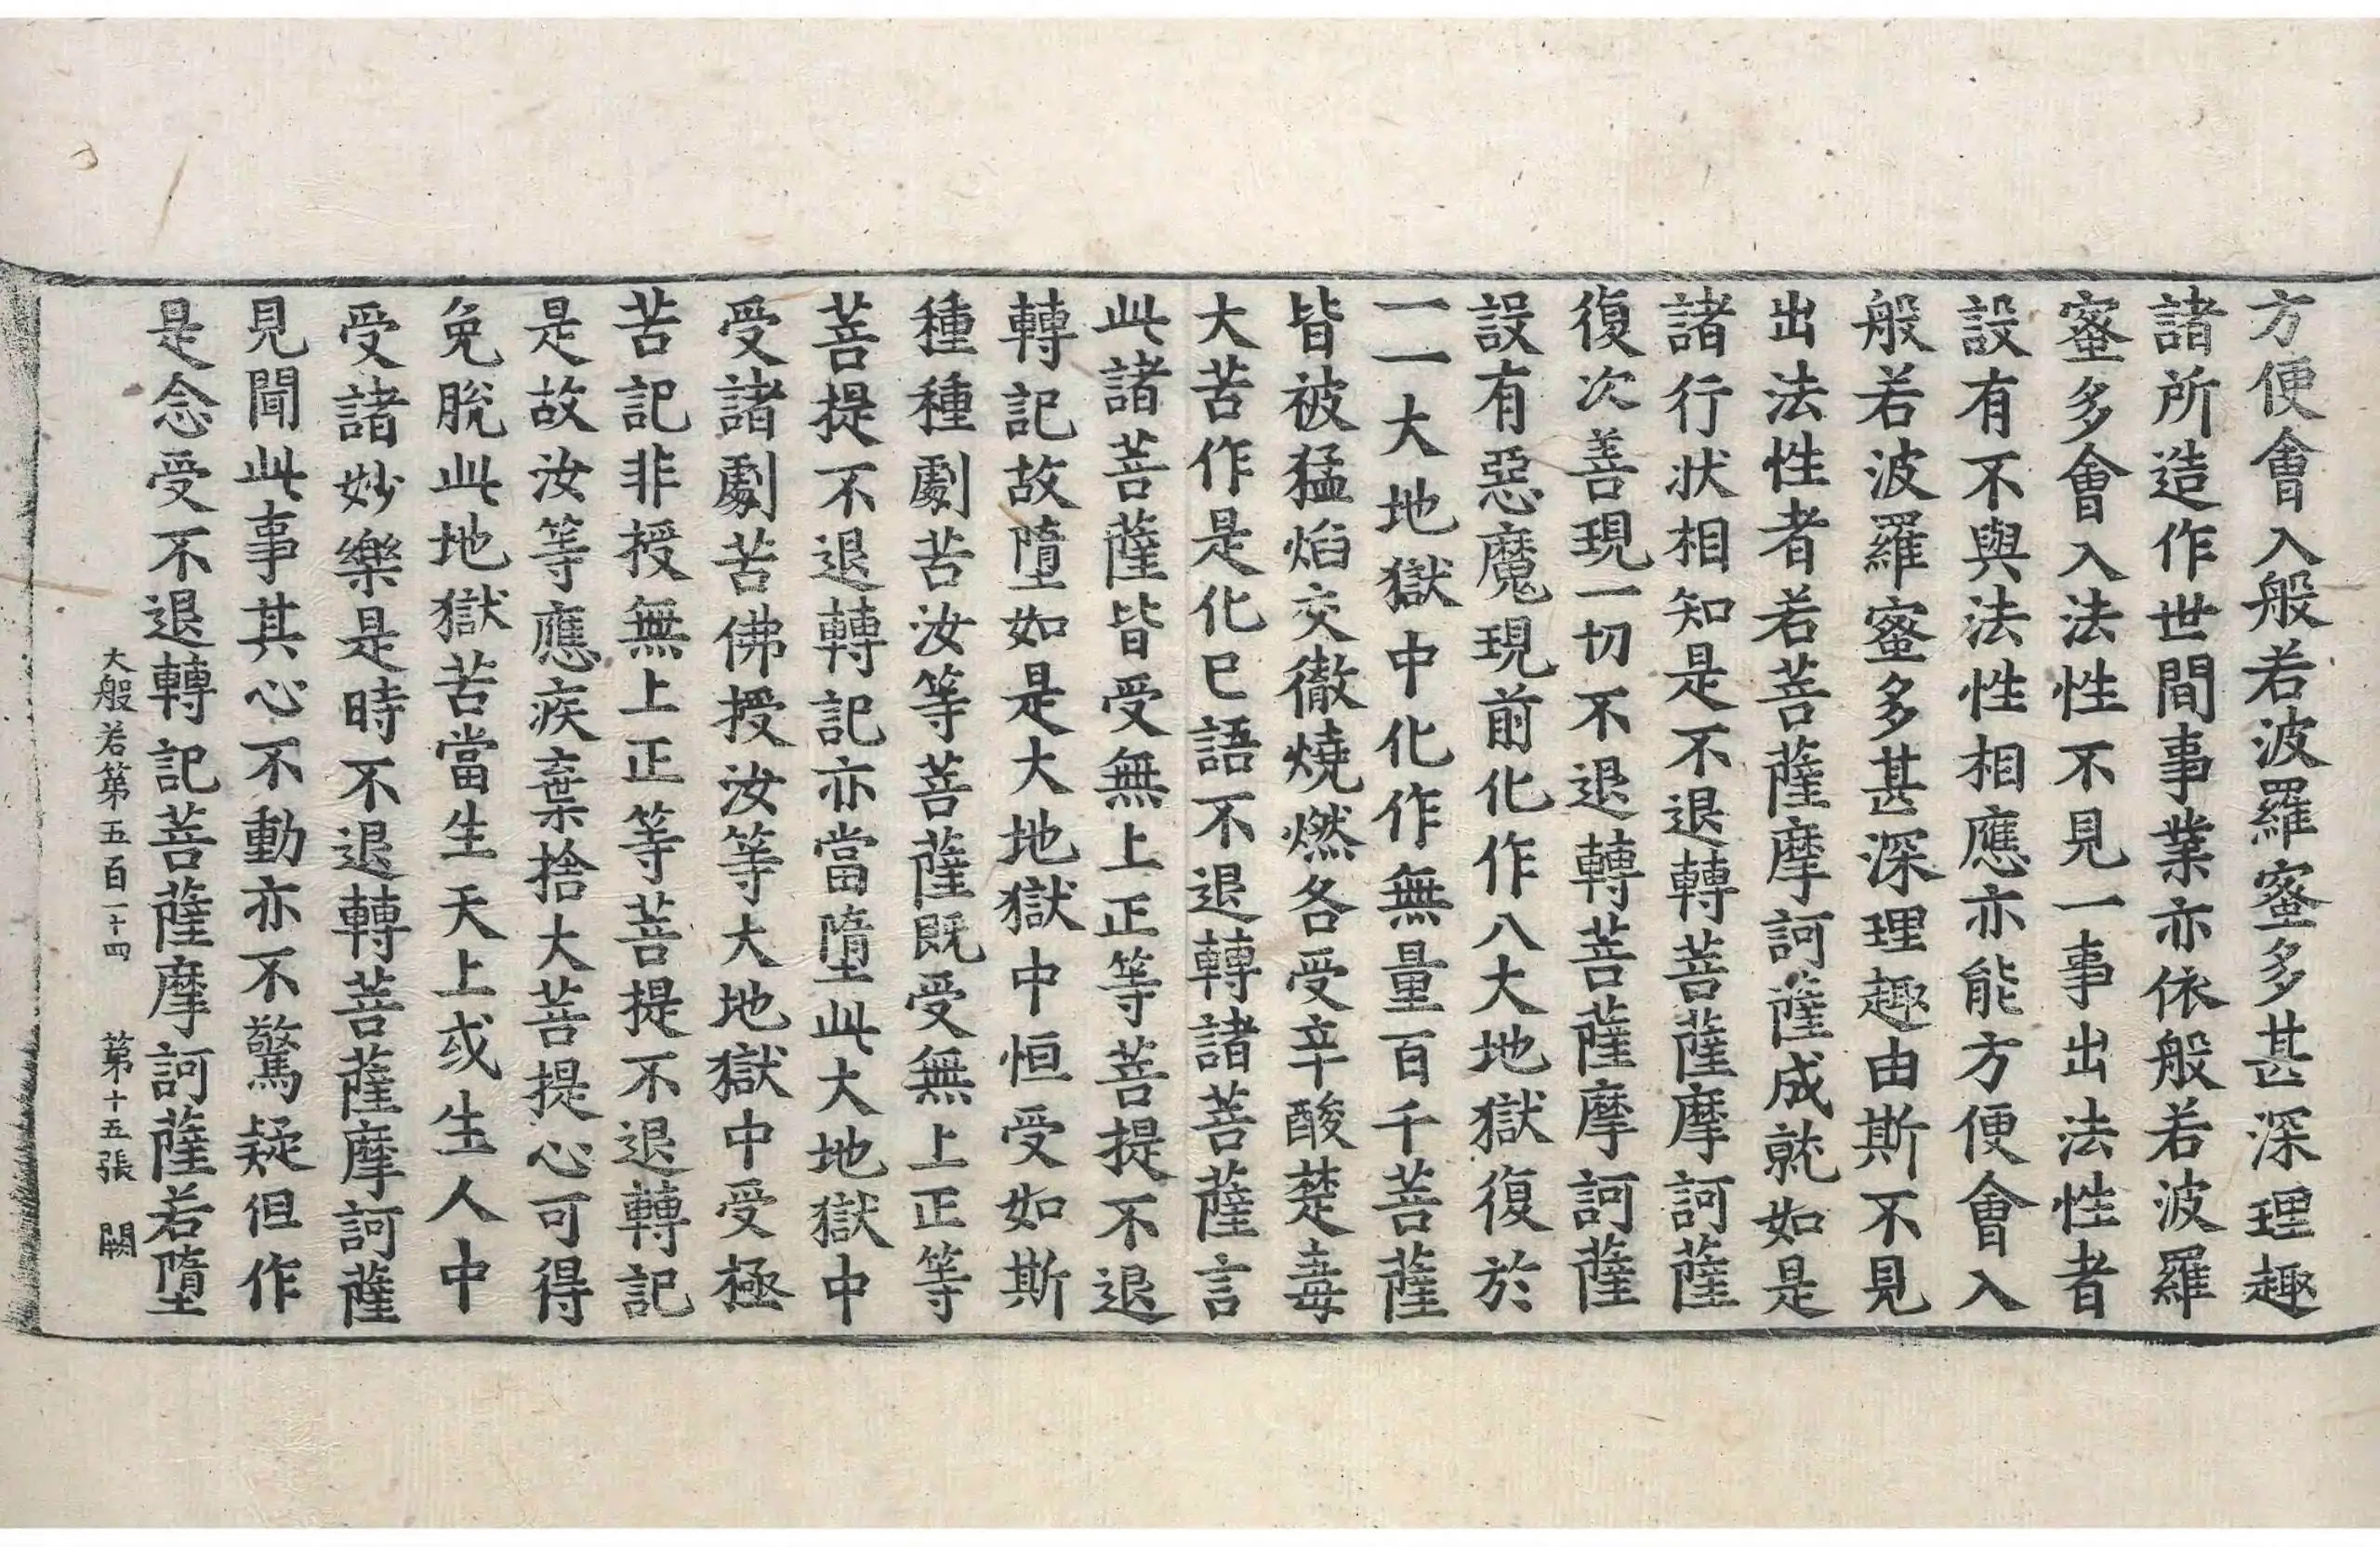 方便會入般若波羅蜜多甚深理趣
諸所造作世間事業亦依般若波羅
蜜多會入法性不見一事出法性者
設有不與法性相應亦能方便會入
般若波羅蜜多甚深理趣由斯不見
出法性者若菩薩摩訶薩成就如是
諸行狀相知是不退轉菩薩摩訶薩
復次善現一切不退轉菩薩摩訶薩
設有惡魔現前化作八大地獄復於
一一大地獄中化作無量百千菩薩
皆被猛焰交徹燒燃各受辛酸楚毒
大苦作是化已語不退轉諸菩薩言
此諸菩薩皆受無上正等菩提不退
轉記故墮如是大地獄中恒受如斯
種種劇苦汝等菩薩既受無上正等
菩提不退轉記亦當墮此大地獄中
受諸劇苦佛授汝等大地獄中受極
苦記非授無上正等菩提不退轉記
是故汝等應疾棄捨大菩提心可得
免脫此地獄苦當生天上或生人中
受諸妙樂是時不退轉菩薩摩訶薩
見聞此事其心不動亦不驚疑但作
是念受不退轉記菩薩摩訶薩若墮
大般若第五百一十四 第十五張 闕